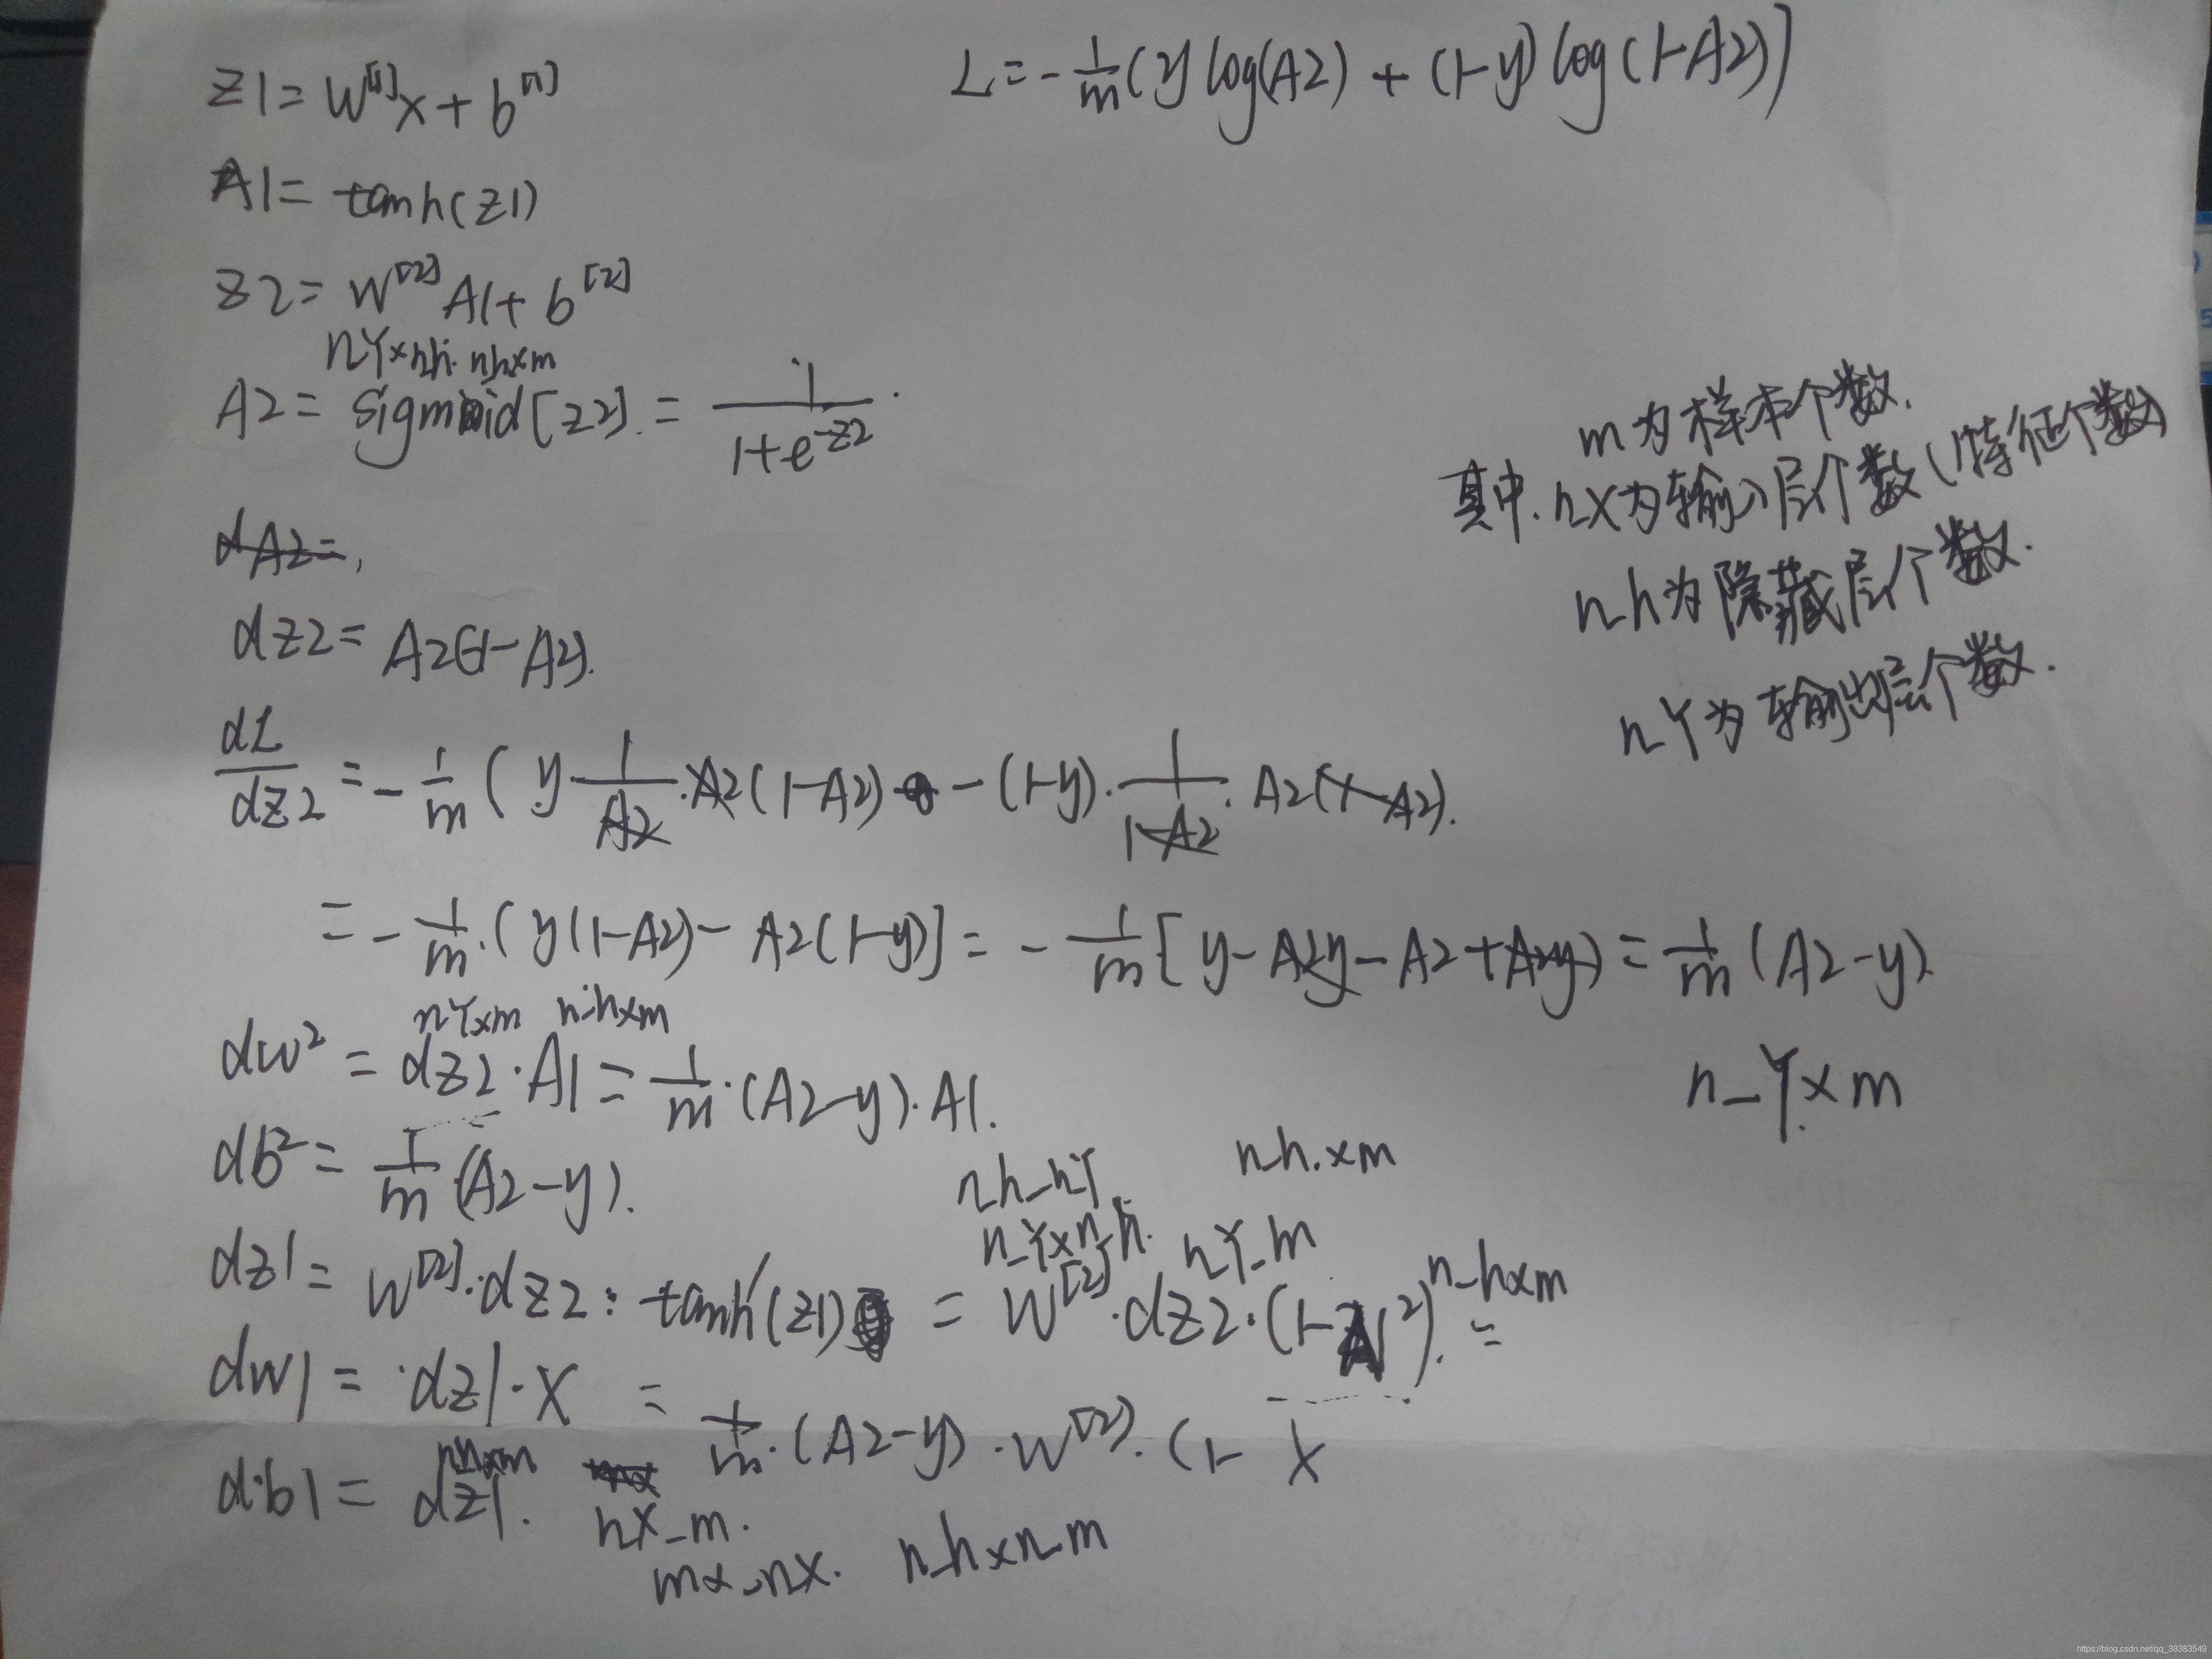 Z1 = W[1]x + b[1]
L = -1/m (y log(A2) + (1-y) log(1-A2))
A1 = tanh(Z1)
Z2 = W[2] A1 + b[2]
nY×nh. nh×m
A2 = sigmoid[Z2]. = 1/(1+e^-Z2).
m为样本个数.
其中. nX为输入层个数(特征个数)
n_h为隐藏层个数.
n_Y为输出层个数.
dA2=,
dZ2 = A2(1-A2).
dL/dZ2 = -1/m ( y·1/A2·A2(1-A2) - (1-y)·1/(1-A2)·A2(1-A2).
= -1/m·(y(1-A2) - A2(1-y)] = -1/m [y - A2y - A2 + A2y) = 1/m (A2-y)
n_Y×m
nY×m n_h×m
dw² = dZ2·A1 = 1/m·(A2-y)·A1.
db² = 1/m·(A2-y).
n_h_nY n_h.×m
n_Y×n_h. nY_m n_h×m
dz1 = W[2]·dZ2·tanh′(Z1) = W[2]·dZ2·(1-A1²). =
dw1 = dz1·X = 1/m·(A2-y)·W[2]·(1- X
nh×m
db1 = dz1.
nX_m.
mx_nX. n_h×n_m
https://blog.csdn.net/qq_38383549